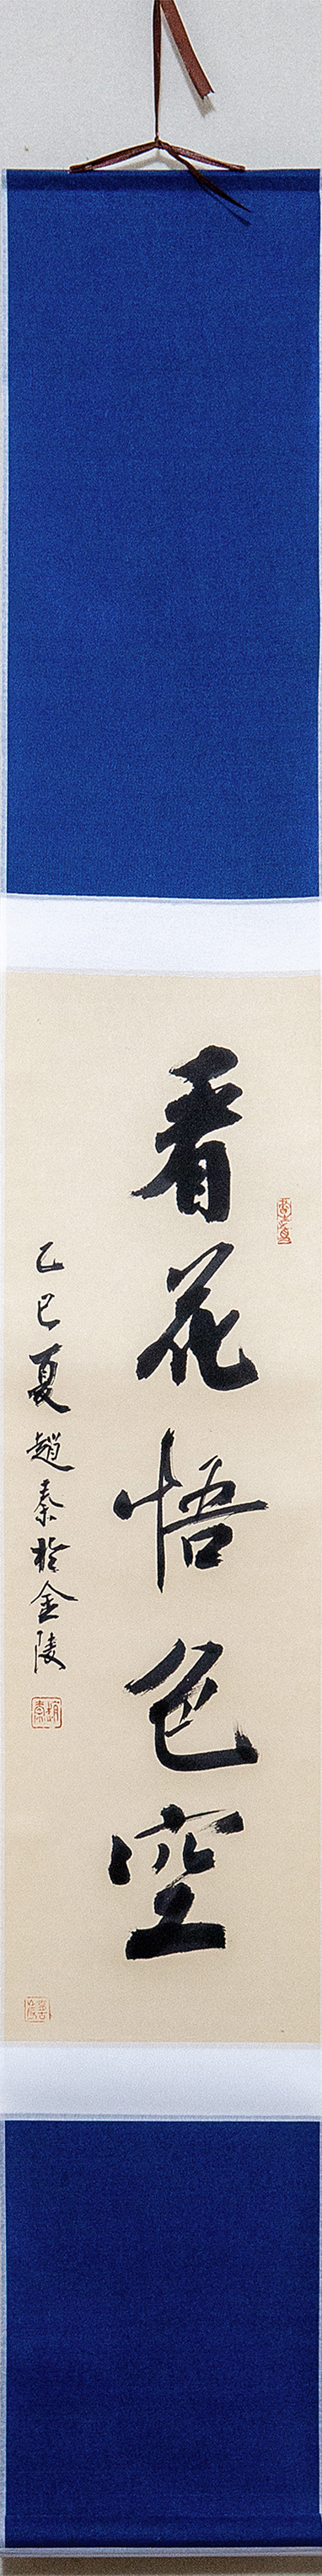 看花悟色空
乙巳夏趙秦於金陵